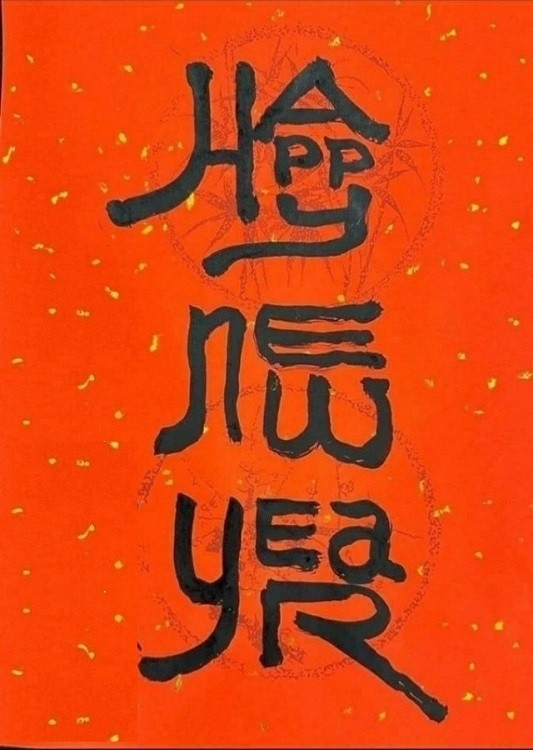 HAPPY
NEW
YEaR